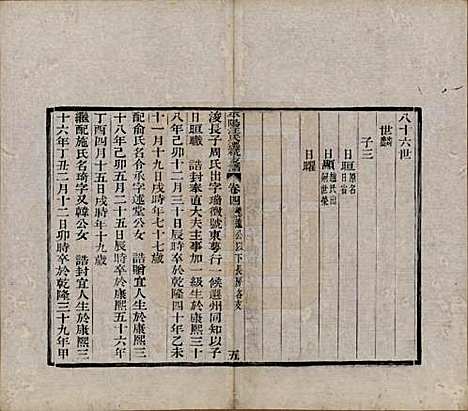 八十六世
世
子三
日 原名日省
日晅 施氏出嗣世榮
日曜
平陽汪氏遷杭支譜 卷四 遵公以下長房各支 五
浚長子周氏出字瑜徵號東萼行一候選州同知以子
日晅職 誥封奉直大夫主事加一級生於康熙三十
八年己卯十二月三十日寅時卒於乾隆四十年乙未
十一月十九日戌時年七十七歲
配俞氏名 字述堂公女 誥贈宜人生於康熙三
十八年己卯五月二十五日辰時卒於康熙五十六年
丁酉四月十五日戌時年十九歲
繼配施氏名琦字又韓公女 誥封宜人生於康熙三
十六年丁丑二月十二日卯時卒於乾隆三十九年甲